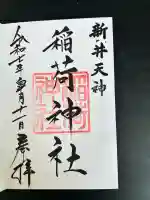 新井天神
稲荷神社
令和七年 月十一日 奉拝